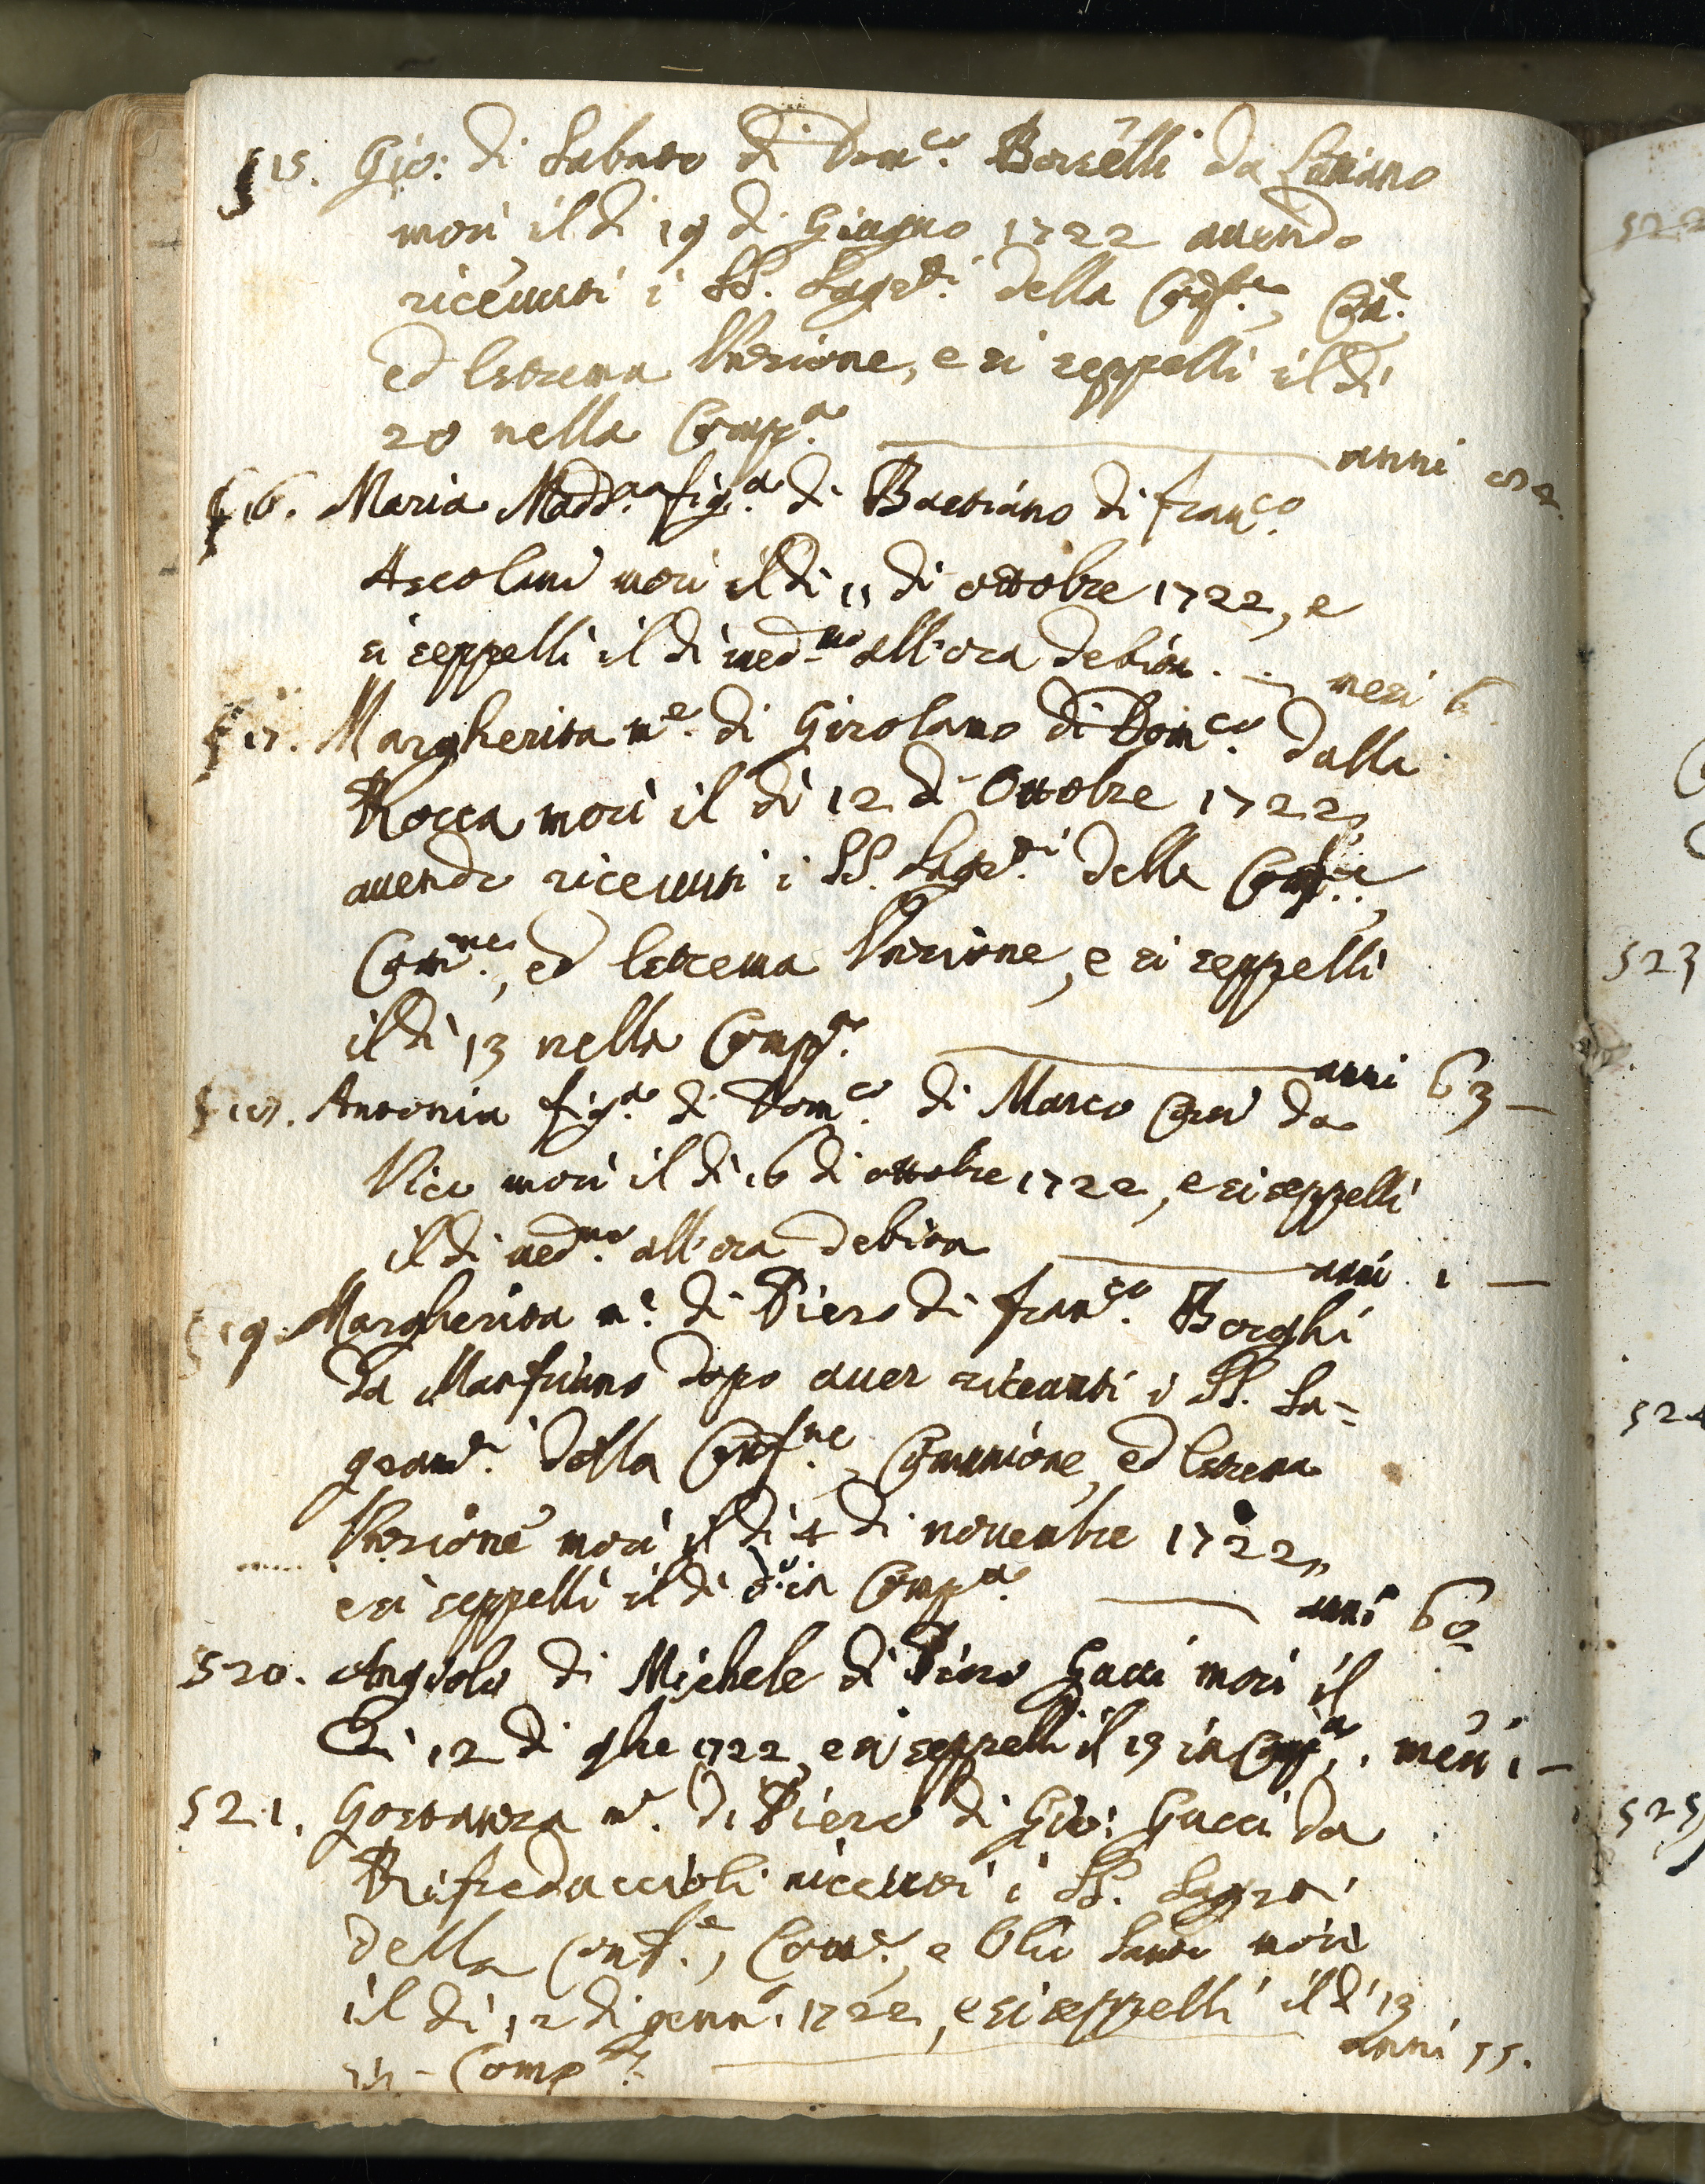 515. Gio: di Sabato di Dom.co Borselli da
morì il dì 19 di Giugno 1722 auendo
riceuuti i SS. Sagr.ti della Conf.e, Com.e
ed Estrema Unzione, e si seppellì il dì
20 nella Comp.a anni
516. Maria Madd.a fig.a di Bastiano di Fran.co
Ascolani morì il dì 11 di ottobre 1722, e
si seppellì il dì med.mo all'ora debita. mesi 6.
517. Margherita m.e di Girolamo di Dom.co dalla
Rocca morì il dì 12 di Ottobre 1722,
auendo riceuuti i SS. Sagr.ti della Conf.e,
Com.ne, ed Estrema Unzione, e si seppellì
il dì 13 nella Comp.a anni 63
518. Antonia fig.a di Dom.co di Marco Corsi da
Vico morì il dì 16 di ottobre 1722, e si seppellì
il dì med.mo all'ora debita anni 1
519. Margherita m.e di Piero di Fran.co Borghi
da dopo auer riceuuti i SS. Sa=
gram.ti della Conf.ne, Comunione, ed Estrema
Unzione morì il dì 4 di nouembre 1722,
e si seppellì il dì d.o in Comp.a anni 60
520. Angiolo di Michele di Piero Gucci morì il
dì 12 di 9bre 1722, e si seppellì il 13 in Comp.a. mesi 1
521. Gostanza m.e di Piero di Gio: Gucci da
Rifredaccioli riceuuti i SS. Sagr.ti
della Conf.e, Com.e, e Olio Santo morì
il dì 12 di genn.o 1722, e si seppellì il dì 13
in Comp.a anni 55.
523
525